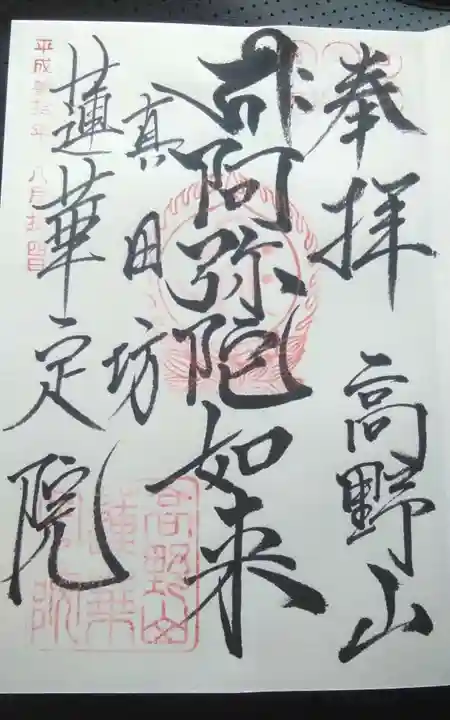 奉拝 高野山
阿弥陀如来
真田坊
蓮華定院
平成 年 八月
高野山
蓮華